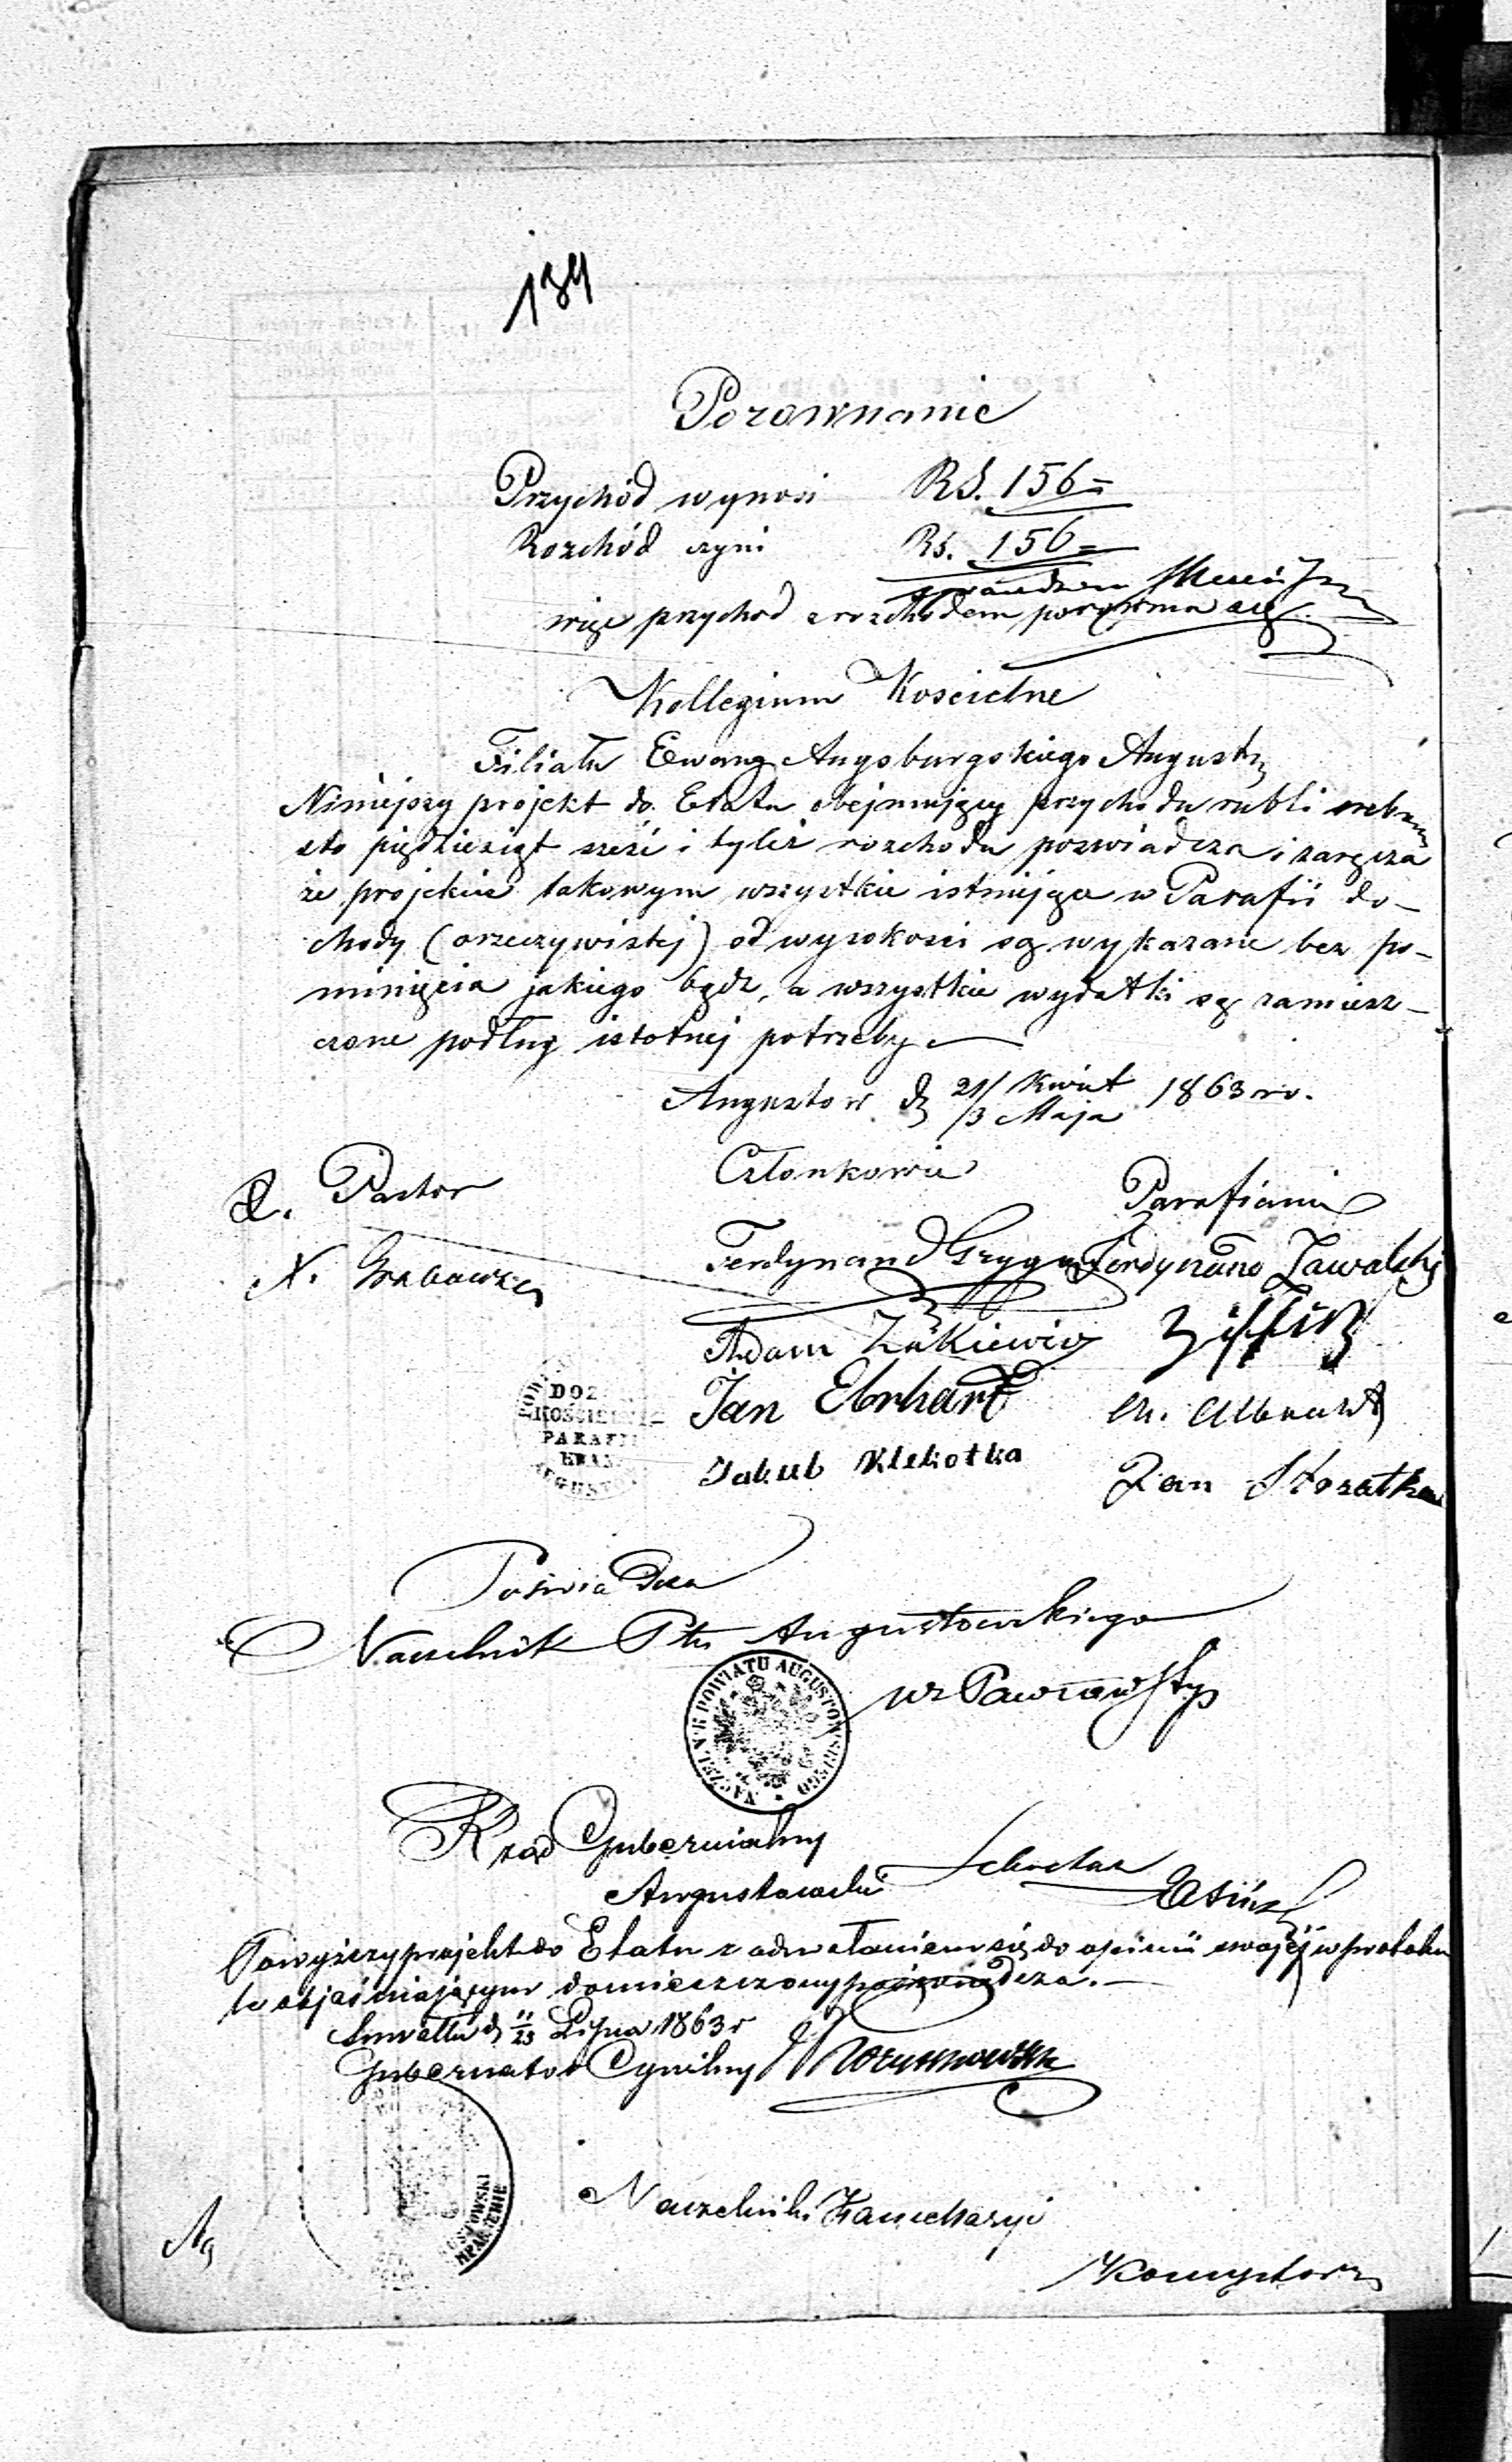 134
Porownanie
Przychód wynosi RS. 156=
Rozchód czyni Rs. 156=
więc przychod z rozchodem porownywa się
Kollegium Koscielne
Filiału Ewang Augsburgskiego Augustow
Niniejszy projekt do Etatu obejmujący przychodu rubli srebrem
sto pięćdziesiąt sześć i tyleż rozchodu poswiadcza i zaręcza
że projekcie takowym wszystkie istniejące w Parafii do-
chody (orzeczywistej) od wysokosci są wykazane bez po-
minięcia jakiego bądz, a wszystkie wydatki są zamiesz-
czone podług istotnej potrzeby.
Augustow d 21/3 Kwiet/Maja 1863 ro.
Pastor Członkowie Parafianie
Ferdynand Ferdynand Zawalski
Adam Żukiewicz
Jan Ebrhart
Jakub Klekotka Jan
DOZ
KOŚCIELNE
PARAFII
EWAN
Poświadcza
Naczelnik Ptu Augustowskiego
NACZELNIK POWIATU AUGUSTOWSKIEGO
Rząd Gubernialny
Augustowski
Powyższy projekt do Etatu z odwołaniem się do opinii swojej w protoku
le objaśniającym domieszczony poświadcza.
Suwałki d 11/23 Lipca 1863 r
Gubernator Cywilny
Naczelnik Kancellaryi